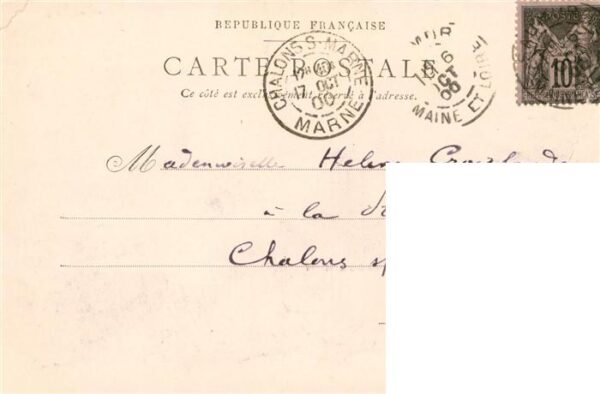 RÉPUBLIQUE FRANÇAISE
CARTE POSTALE
Ce côté est exclusivement réservé à l'adresse.
CHALONS-S-MARNE
17 OCT
00
MARNE
MUR
6
OCT
00
MAINE ET LOIRE
POSTE
10
Mademoiselle Helene
à la
Chalons s